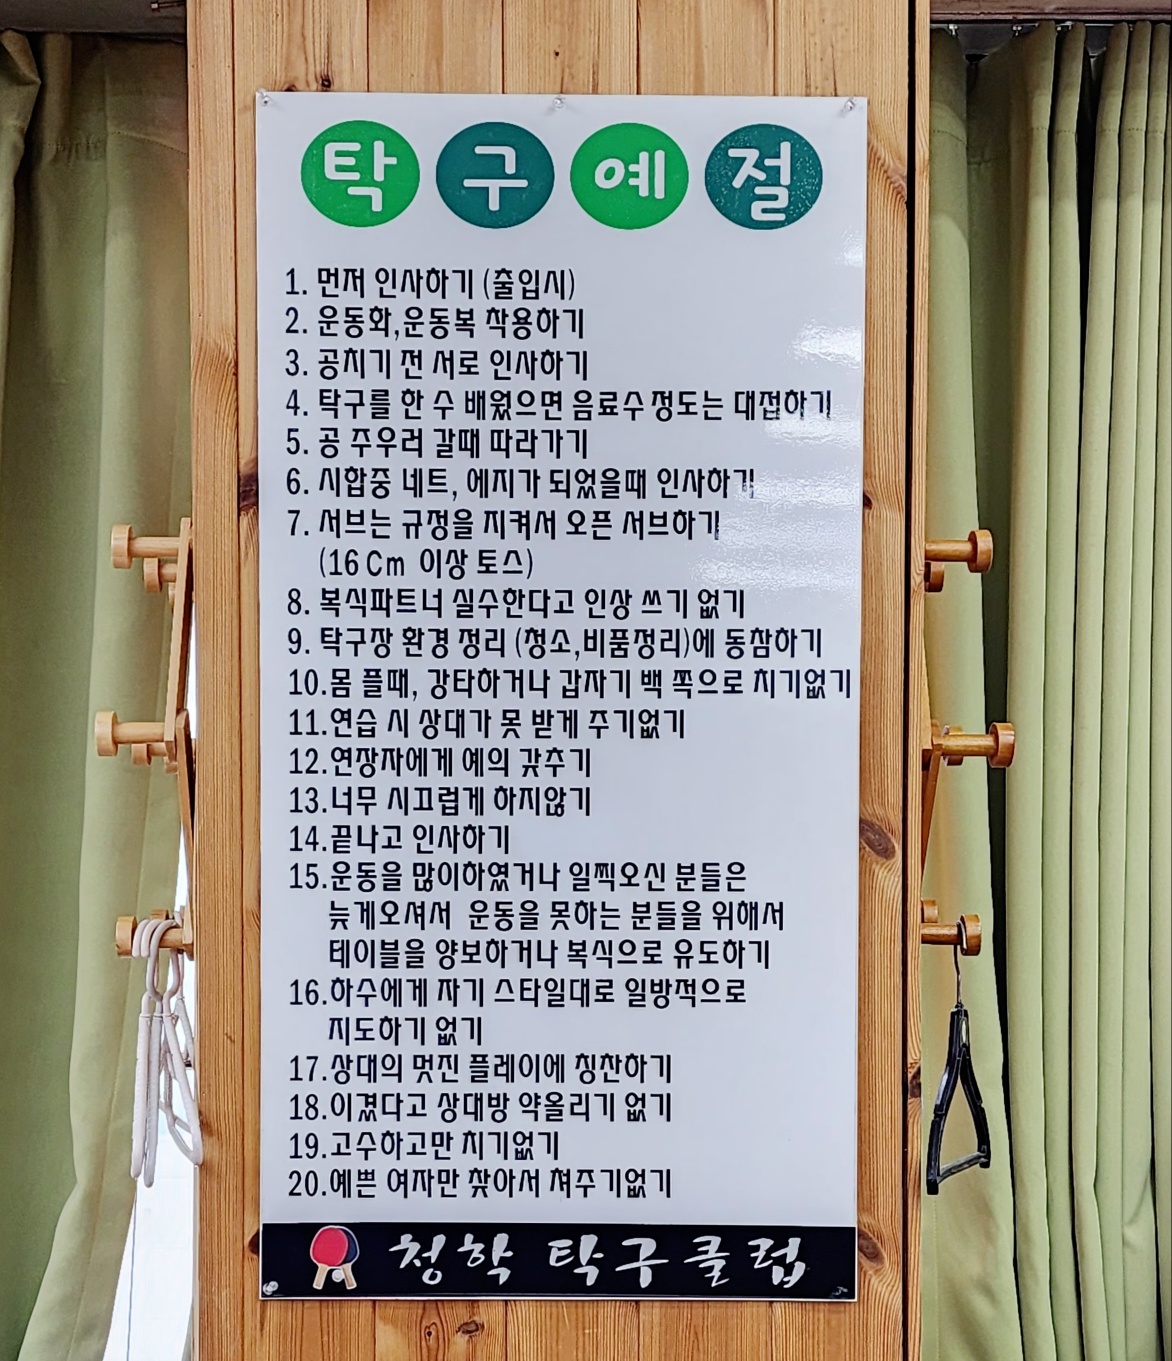 탁구예절
1. 먼저 인사하기 (출입시)
2. 운동화,운동복 착용하기
3. 공치기 전 서로 인사하기
4. 탁구를 한 수 배웠으면 음료수 정도는 대접하기
5. 공 주우러 갈때 따라가기
6. 시합중 네트, 에지가 되었을때 인사하기
7. 서브는 규정을 지켜서 오픈 서브하기
(16Cm 이상 토스)
8. 복식파트너 실수한다고 인상 쓰기 없기
9. 탁구장 환경 정리 (청소,비품정리)에 동참하기
10.몸 플때, 강타하거나 갑자기 백 쪽으로 치기없기
11.연습 시 상대가 못 받게 주기없기
12.연장자에게 예의 갖추기
13.너무 시끄럽게 하지않기
14.끝나고 인사하기
15.운동을 많이하였거나 일찍오신 분들은
늦게오셔서 운동을 못하는 분들을 위해서
테이블을 양보하거나 복식으로 유도하기
16.하수에게 자기 스타일대로 일방적으로
지도하기 없기
17.상대의 멋진 플레이에 칭찬하기
18.이겼다고 상대방 약올리기 없기
19.고수하고만 치기없기
20.예쁜 여자만 찾아서 쳐주기없기
청학 탁구클럽